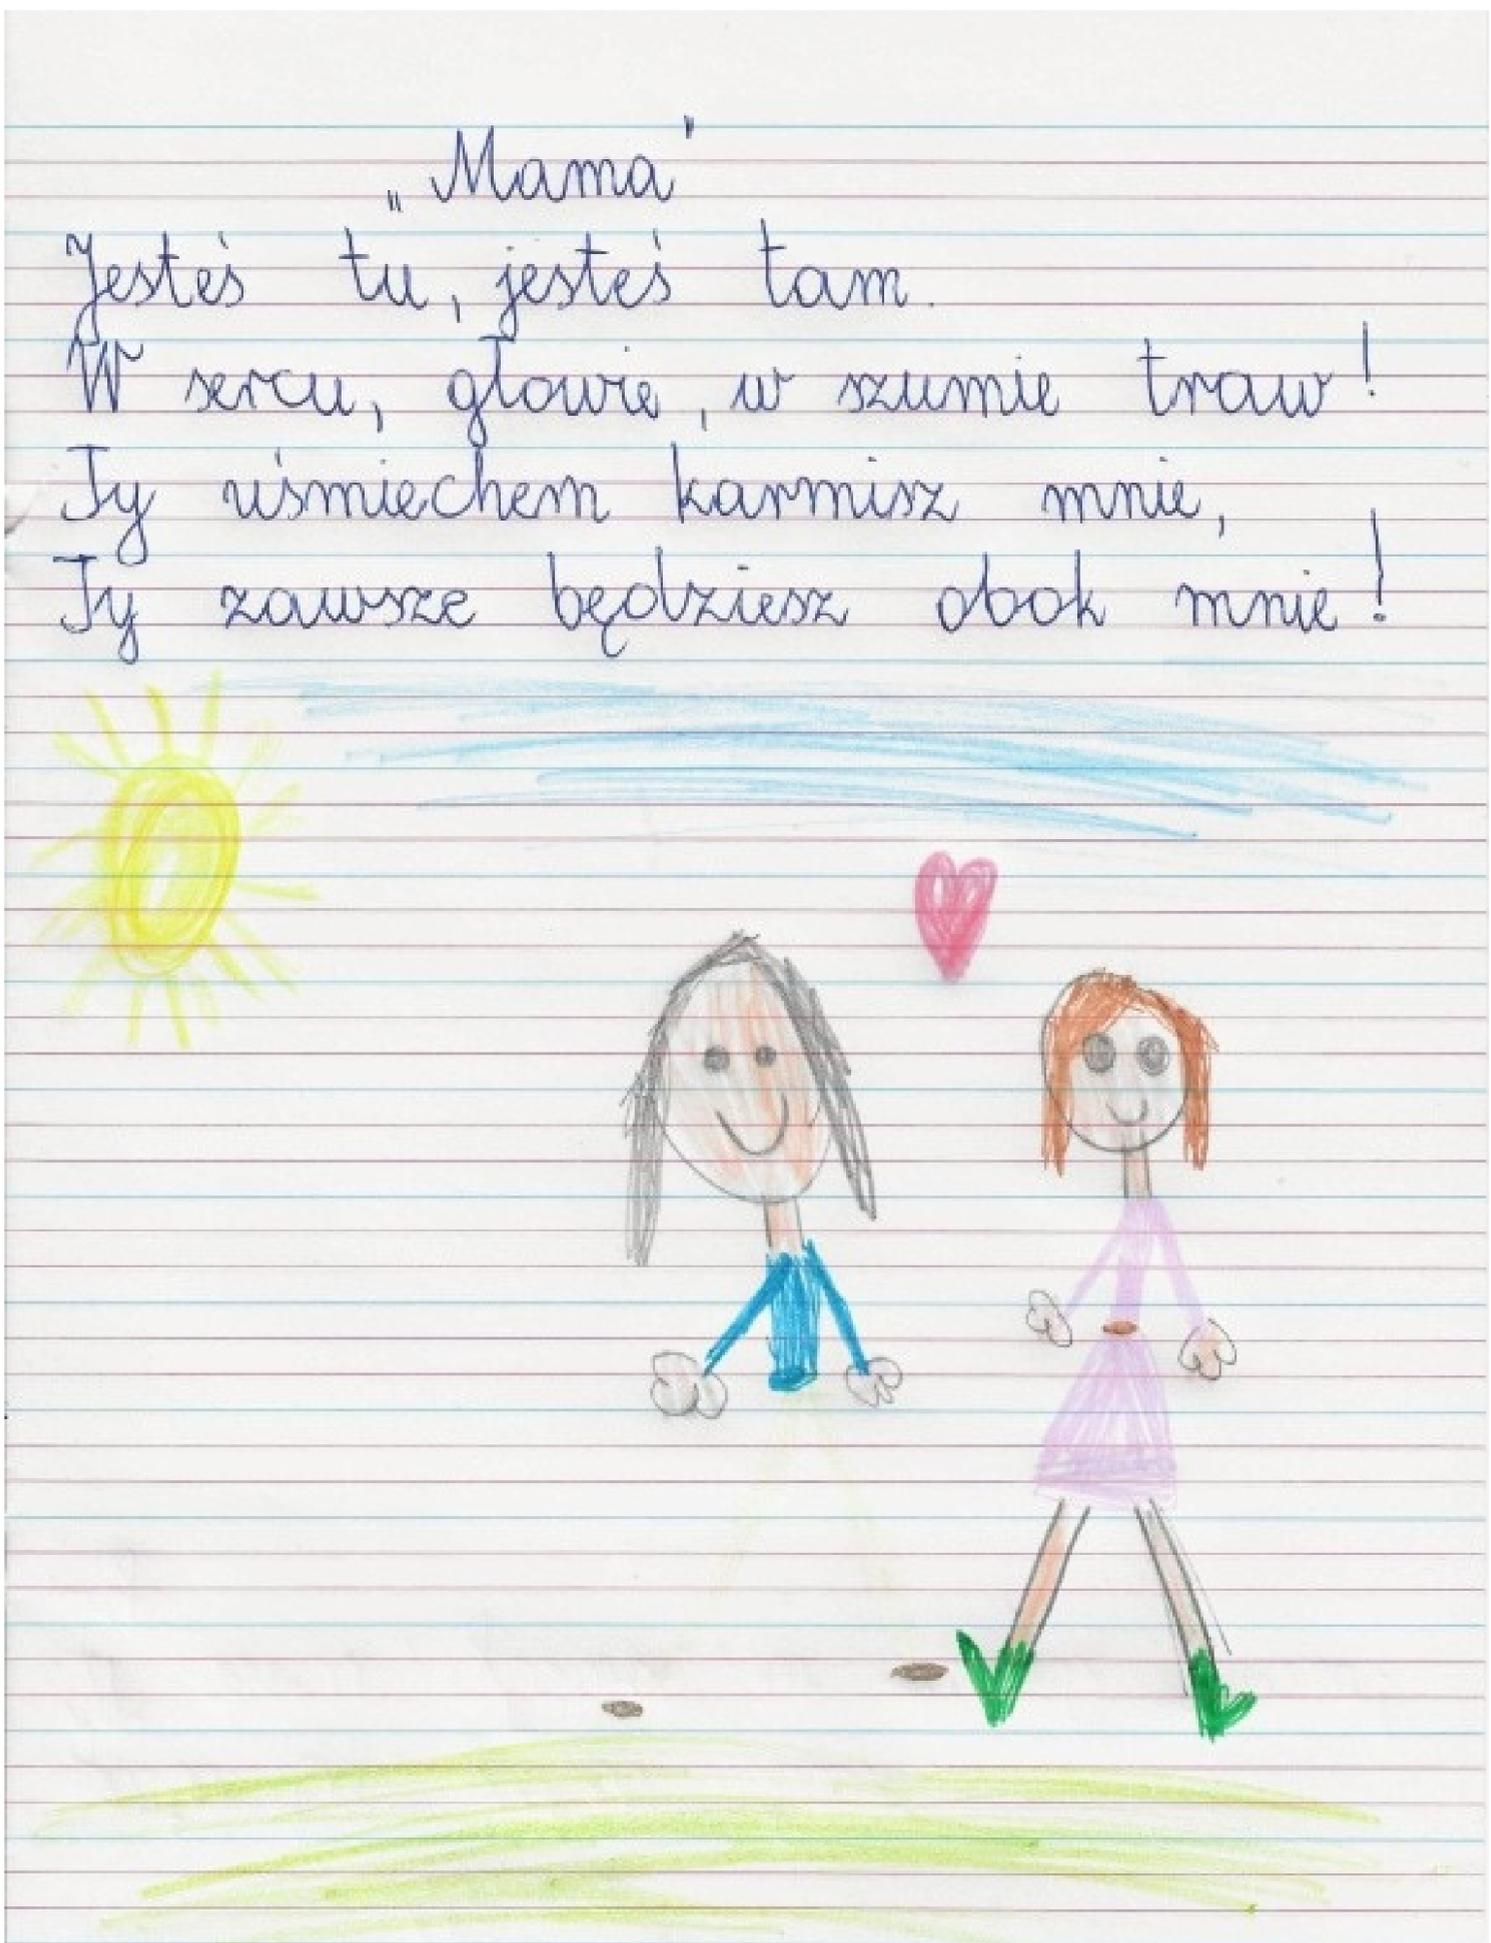 „Mama"
Jesteś tu, jesteś tam.
W sercu, głowie, w szumie traw!
Ty uśmiechem karmisz mnie,
Ty zawsze będziesz obok mnie!